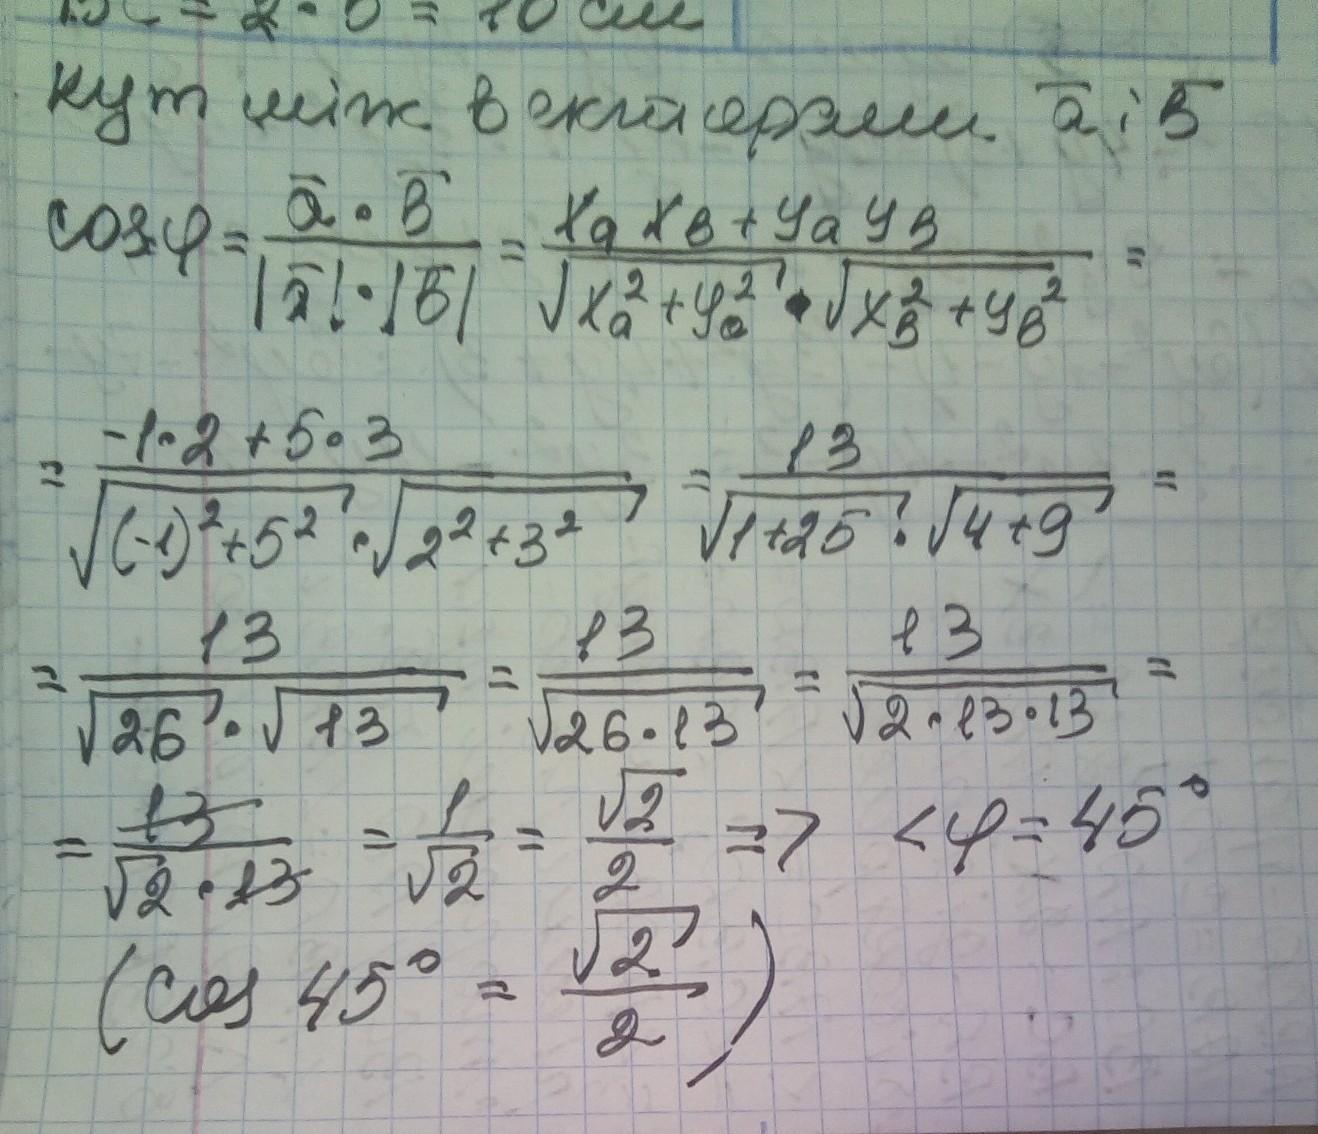 = 2 · 5 = 10 см
кут між векторами a̅ і b̅
cos φ = (a̅ · b̅)/(|a̅| · |b̅|) = (xₐ x_b + yₐ y_b)/(√(xₐ² + yₐ²) · √(x_b² + y_b²)) =
= (-1 · 2 + 5 · 3)/(√((-1)² + 5²) · √(2² + 3²)) = 13/(√(1+25) · √(4+9)) =
= 13/(√26 · √13) = 13/√(26 · 13) = 13/√(2 · 13 · 13) =
= 13/(√2 · 13) = 1/√2 = √2/2 => <φ = 45°
(cos 45° = √2/2)